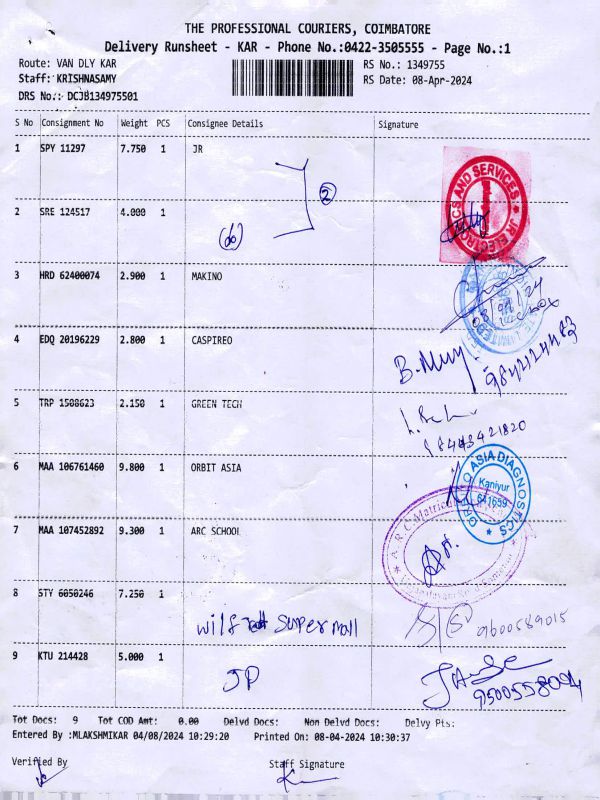 THE PROFESSIONAL COURIERS, COIMBATORE
Delivery Runsheet - KAR - Phone No.:0422-3505555 - Page No.:1
Route: VAN DLY KAR RS No.: 1349755
Staff: KRISHNASAMY RS Date: 08-Apr-2024
DRS No.: DCJB134975501
S No Consignment No Weight PCS Consignee Details Signature
1 SPY 11297 7.750 1 JR
2
JR ELECTRONICS AND SERVICES
2 SRE 124517 4.000 1
(do)
3 HRD 62400074 2.900 1 MAKINO
4 EDQ 20196229 2.800 1 CASPIREO
5 TRP 1508623 2.150 1 GREEN TECH
98443421820
6 MAA 106761460 9.800 1 ORBIT ASIA
ASIA DIAGNOSTICS
Kaniyur
641659
7 MAA 107452892 9.300 1 ARC SCHOOL
8 STY 6050246 7.250 1
Super mall 9600589015
9 KTU 214428 5.000 1
JP
9500558094
Tot Docs: 9 Tot COD Amt: 0.00 Delvd Docs: Non Delvd Docs: Delvy Pts:
Entered By :MLAKSHMIKAR 04/08/2024 10:29:20 Printed On: 08-04-2024 10:30:37
Verified By Staff Signature